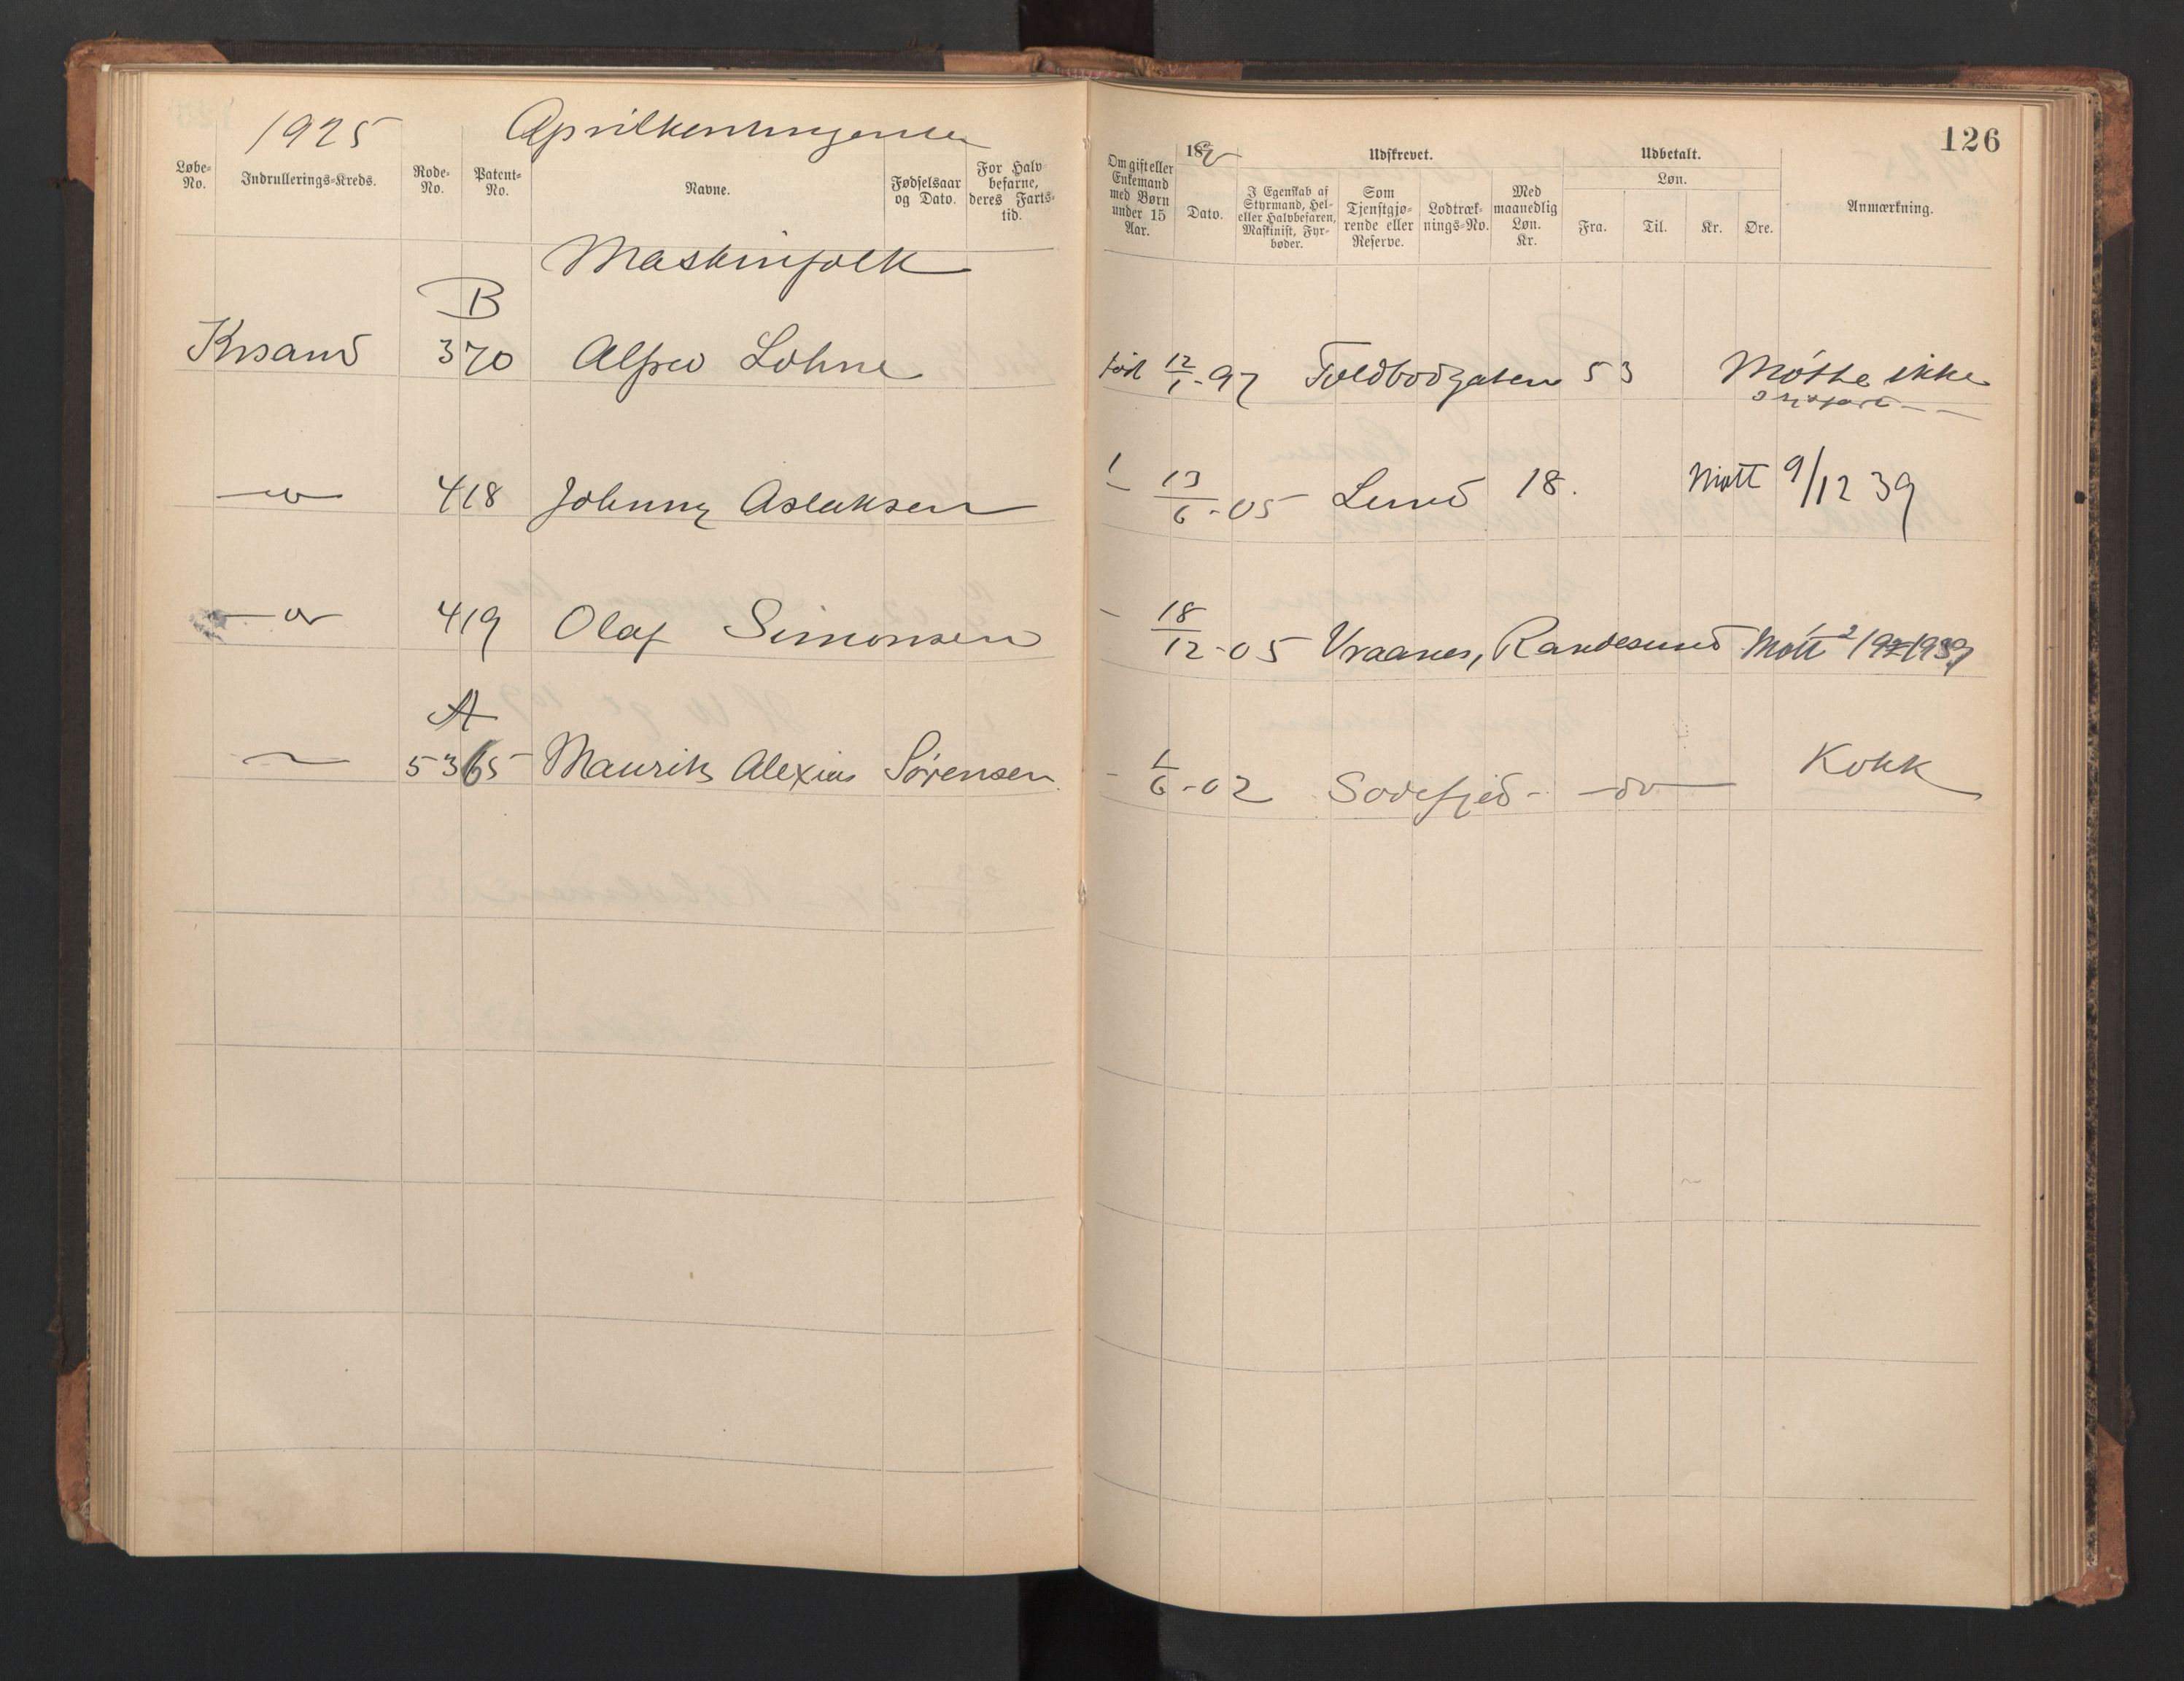 1925 Aprilkontingenten
Løbe-No. Indrullerings-Kreds. Rode-No. Patent-No. Navne. Fødselsaar og Dato. For Halvbefarne, deres Farts-tid.
Maskinfolk
B
Krsand 370 Alfred Lohne
-"- 418 Johnny Aslaksen
-"- 419 Olaf Simonsen
A
-"- 5365 Maurits Alexius Sørensen
126
Om gift eller Enkemand med Børn under 15 Aar. 18 Dato. Udskrevet. I Egenskab af Styrmand, Hel- eller Halvbefaren, Maskinist, Fyrbøder. Som Tjenstgjørende eller Reserve. Lodtræknings-No. Med maanedlig Løn. Kr. Udbetalt. Løn. Fra. Til. Kr. Øre. Anmærkning.
født 12/1-97 Toldbodgaten 53 Møtte ikke
13/6-05 Lund 18. Møtt 9/12 39
18/12-05 Vraanes, Randesund Møtt 1939
1/6-02 Sodefjed -do- Kokk